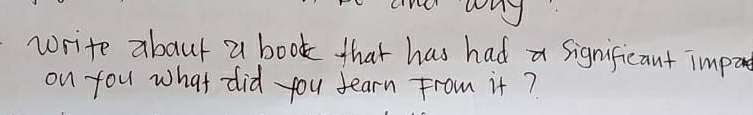 and why?
write about a book that has had a significant impact
on you what did you learn From it ?